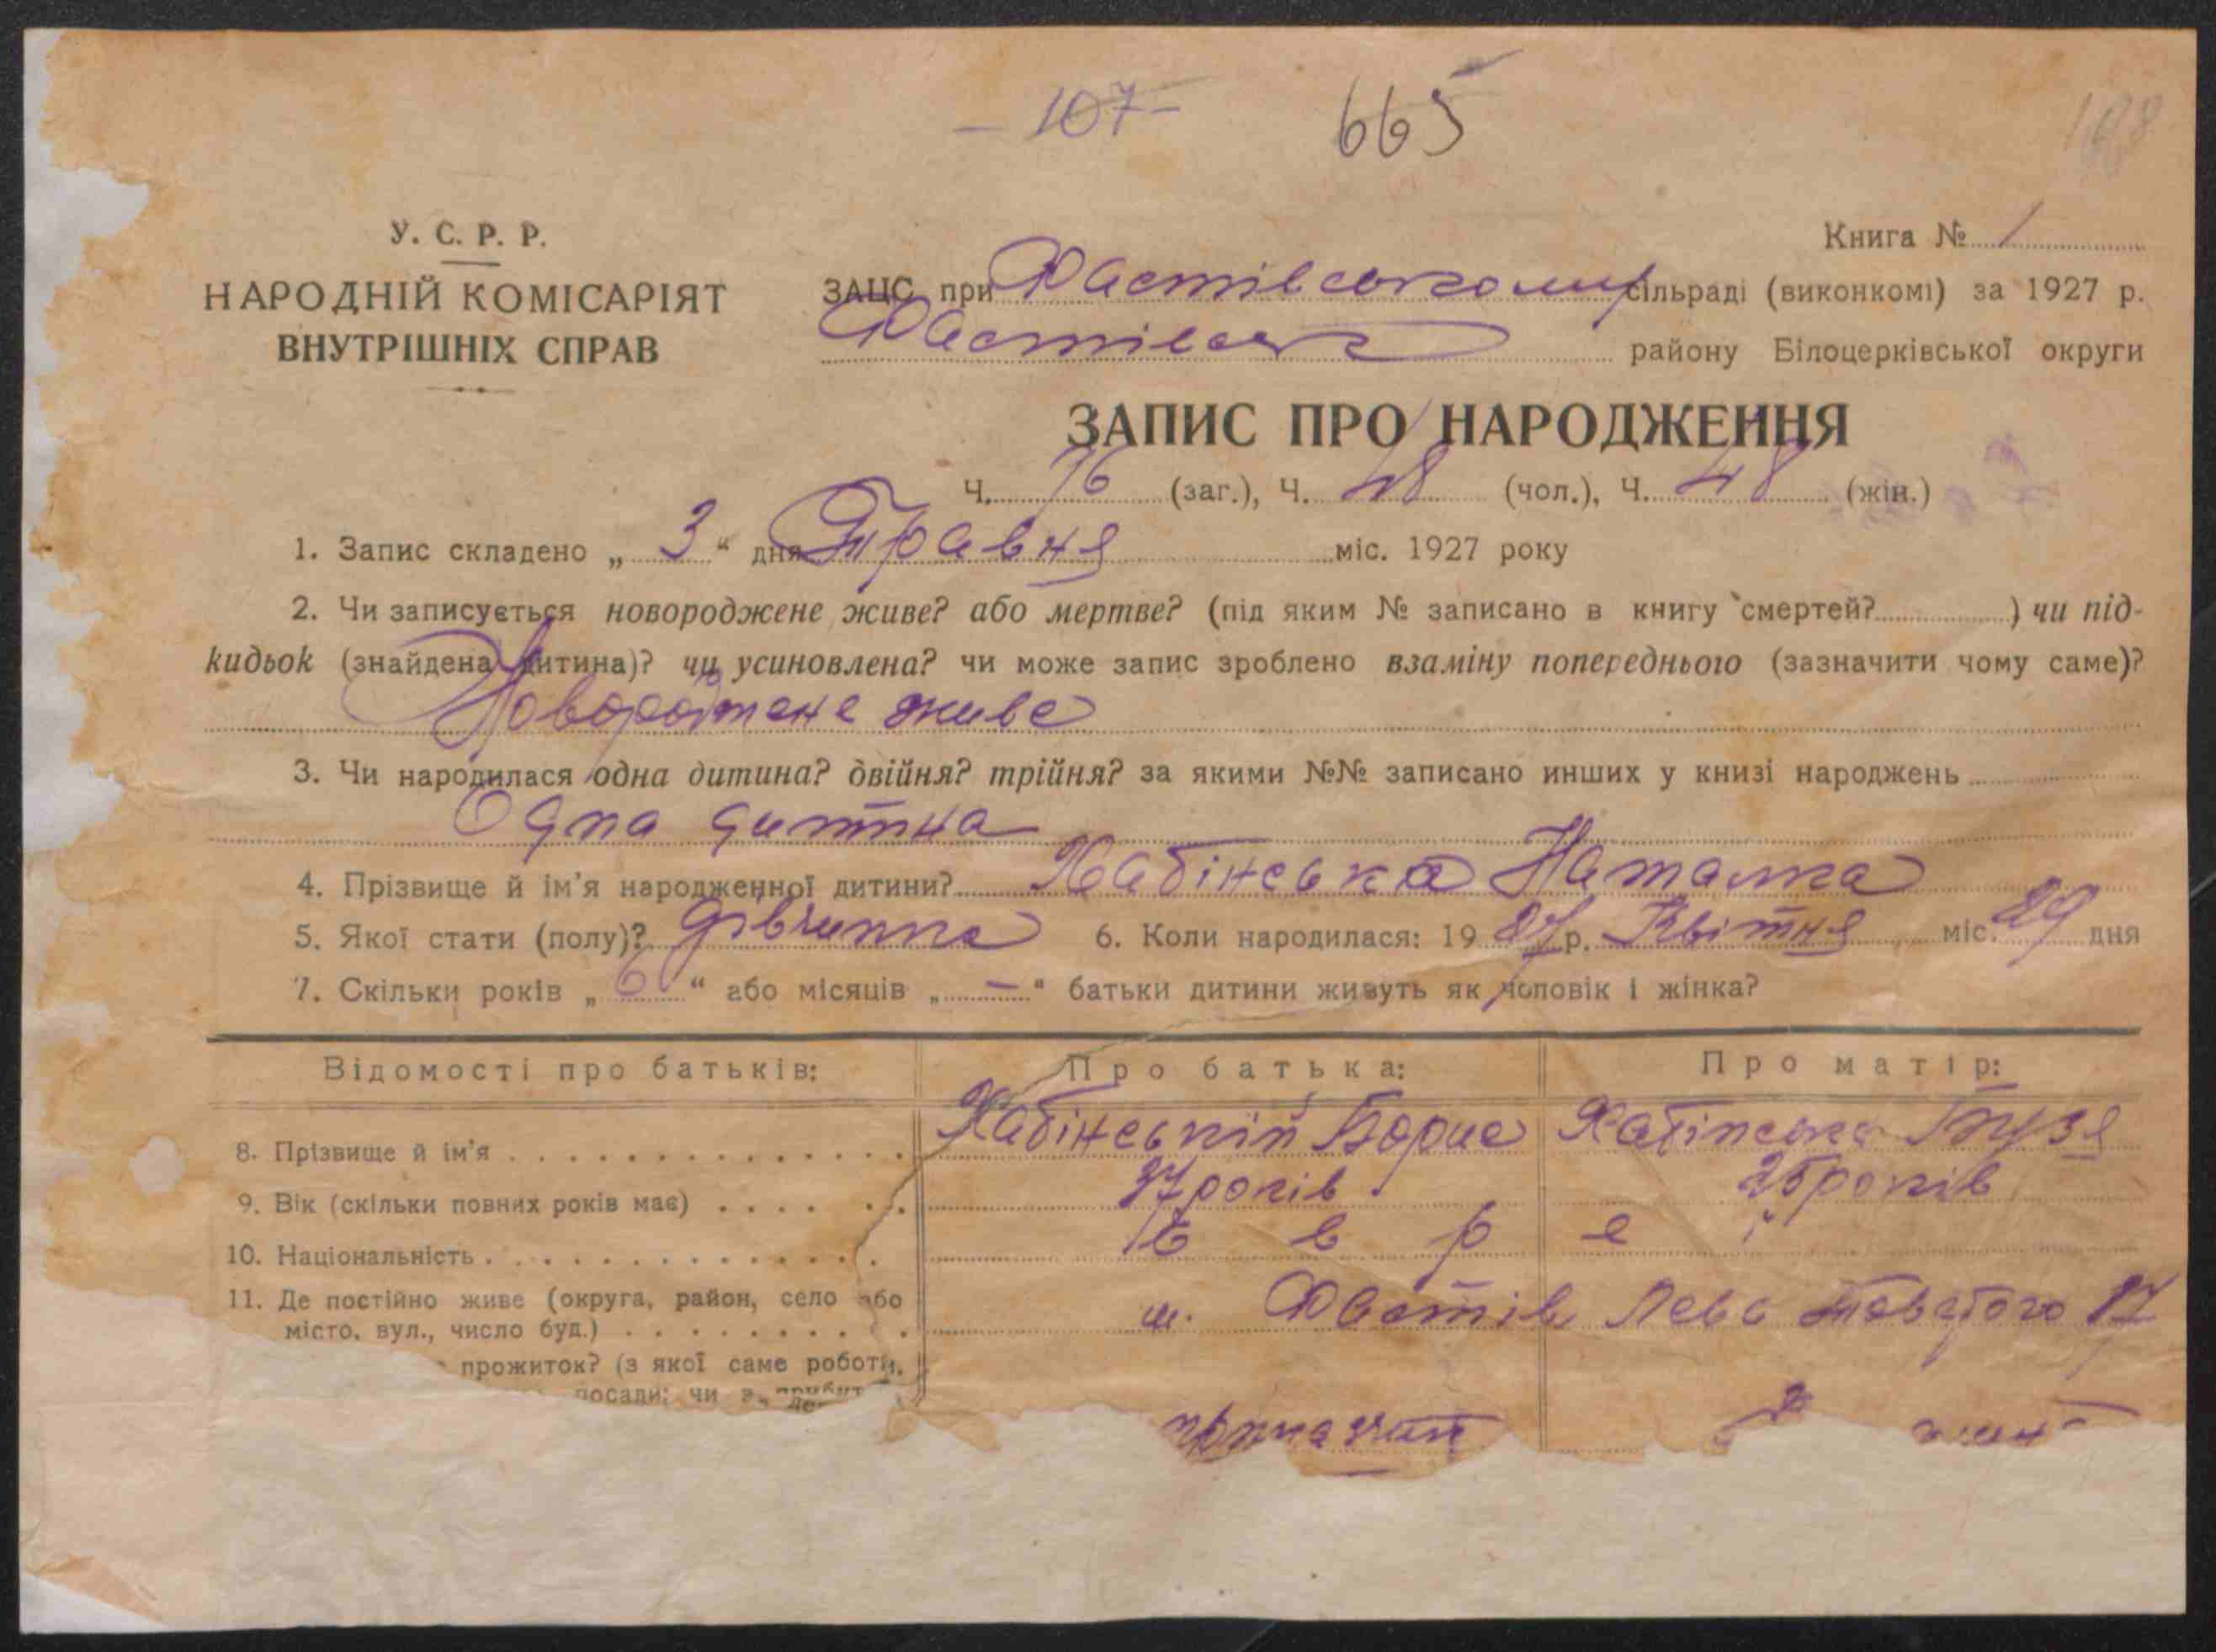 - 107 -
665
У. С. Р. Р.
НАРОДНІЙ КОМІСАРІЯТ
ВНУТРІШНІХ СПРАВ
Книга № 1
ЗАЦС при Хвастівському сільраді (виконкомі) за 1927 р.
району Білоцерківської округи
ЗАПИС ПРО НАРОДЖЕННЯ
Ч. (заг.), Ч. 48 (чол.), Ч. 48 (жін.)
1. Запис складено „ 3 “ дня Травня міс. 1927 року
2. Чи записується новороджене живе? або мертве? (під яким № записано в книгу смертей? ) чи під-
кидьок (знайдена дитина)? чи усиновлена? чи може запис зроблено взаміну попереднього (зазначити чому саме)?
живе
3. Чи народилася одна дитина? двійня? трійня? за якими №№ записано инших у книзі народжень
Одна дитина
4. Прізвище й ім'я народженної дитини? Хабінська Наталка
5. Якої стати (полу)? дівчинка 6. Коли народилася: 19 27 р. Квітня міс. 29 дня
7. Скільки років „ 6 “ або місяців „ — “ батьки дитини живуть як чоловік і жінка?
Відомості про батьків: Про батька: Про матір:
8. Прізвище й ім'я Хабінський Борис Хабінська Бузя
9. Вік (скільки повних років має) 37 років 25 років
10. Національність Є в р е ї
11. Де постійно живе (округа, район, село або
місто, вул., число буд.) м. Хвастів Лева Товстого
прожиток? (з якої саме роботи,
посади; чи з